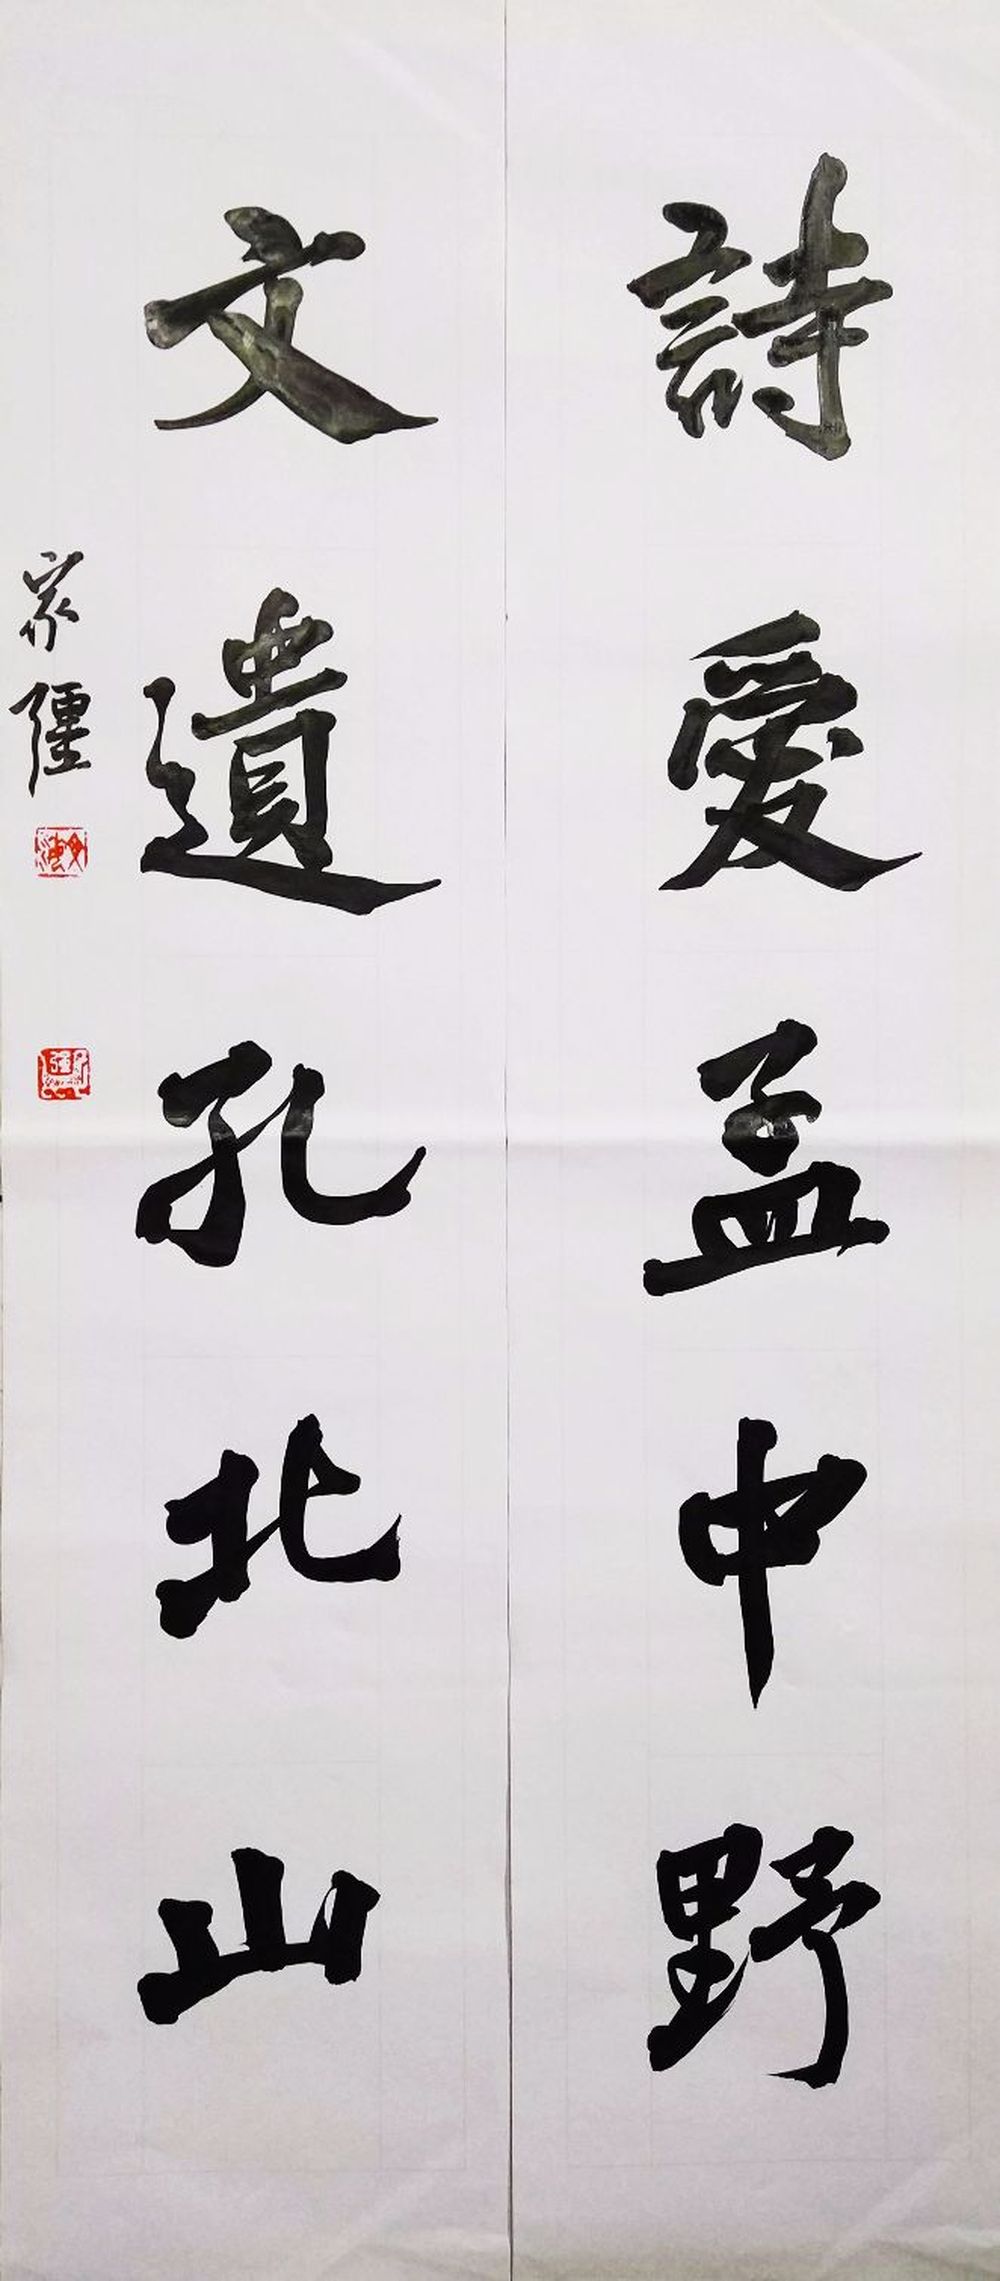 詩愛孟中野
文遺孔北山
家疆